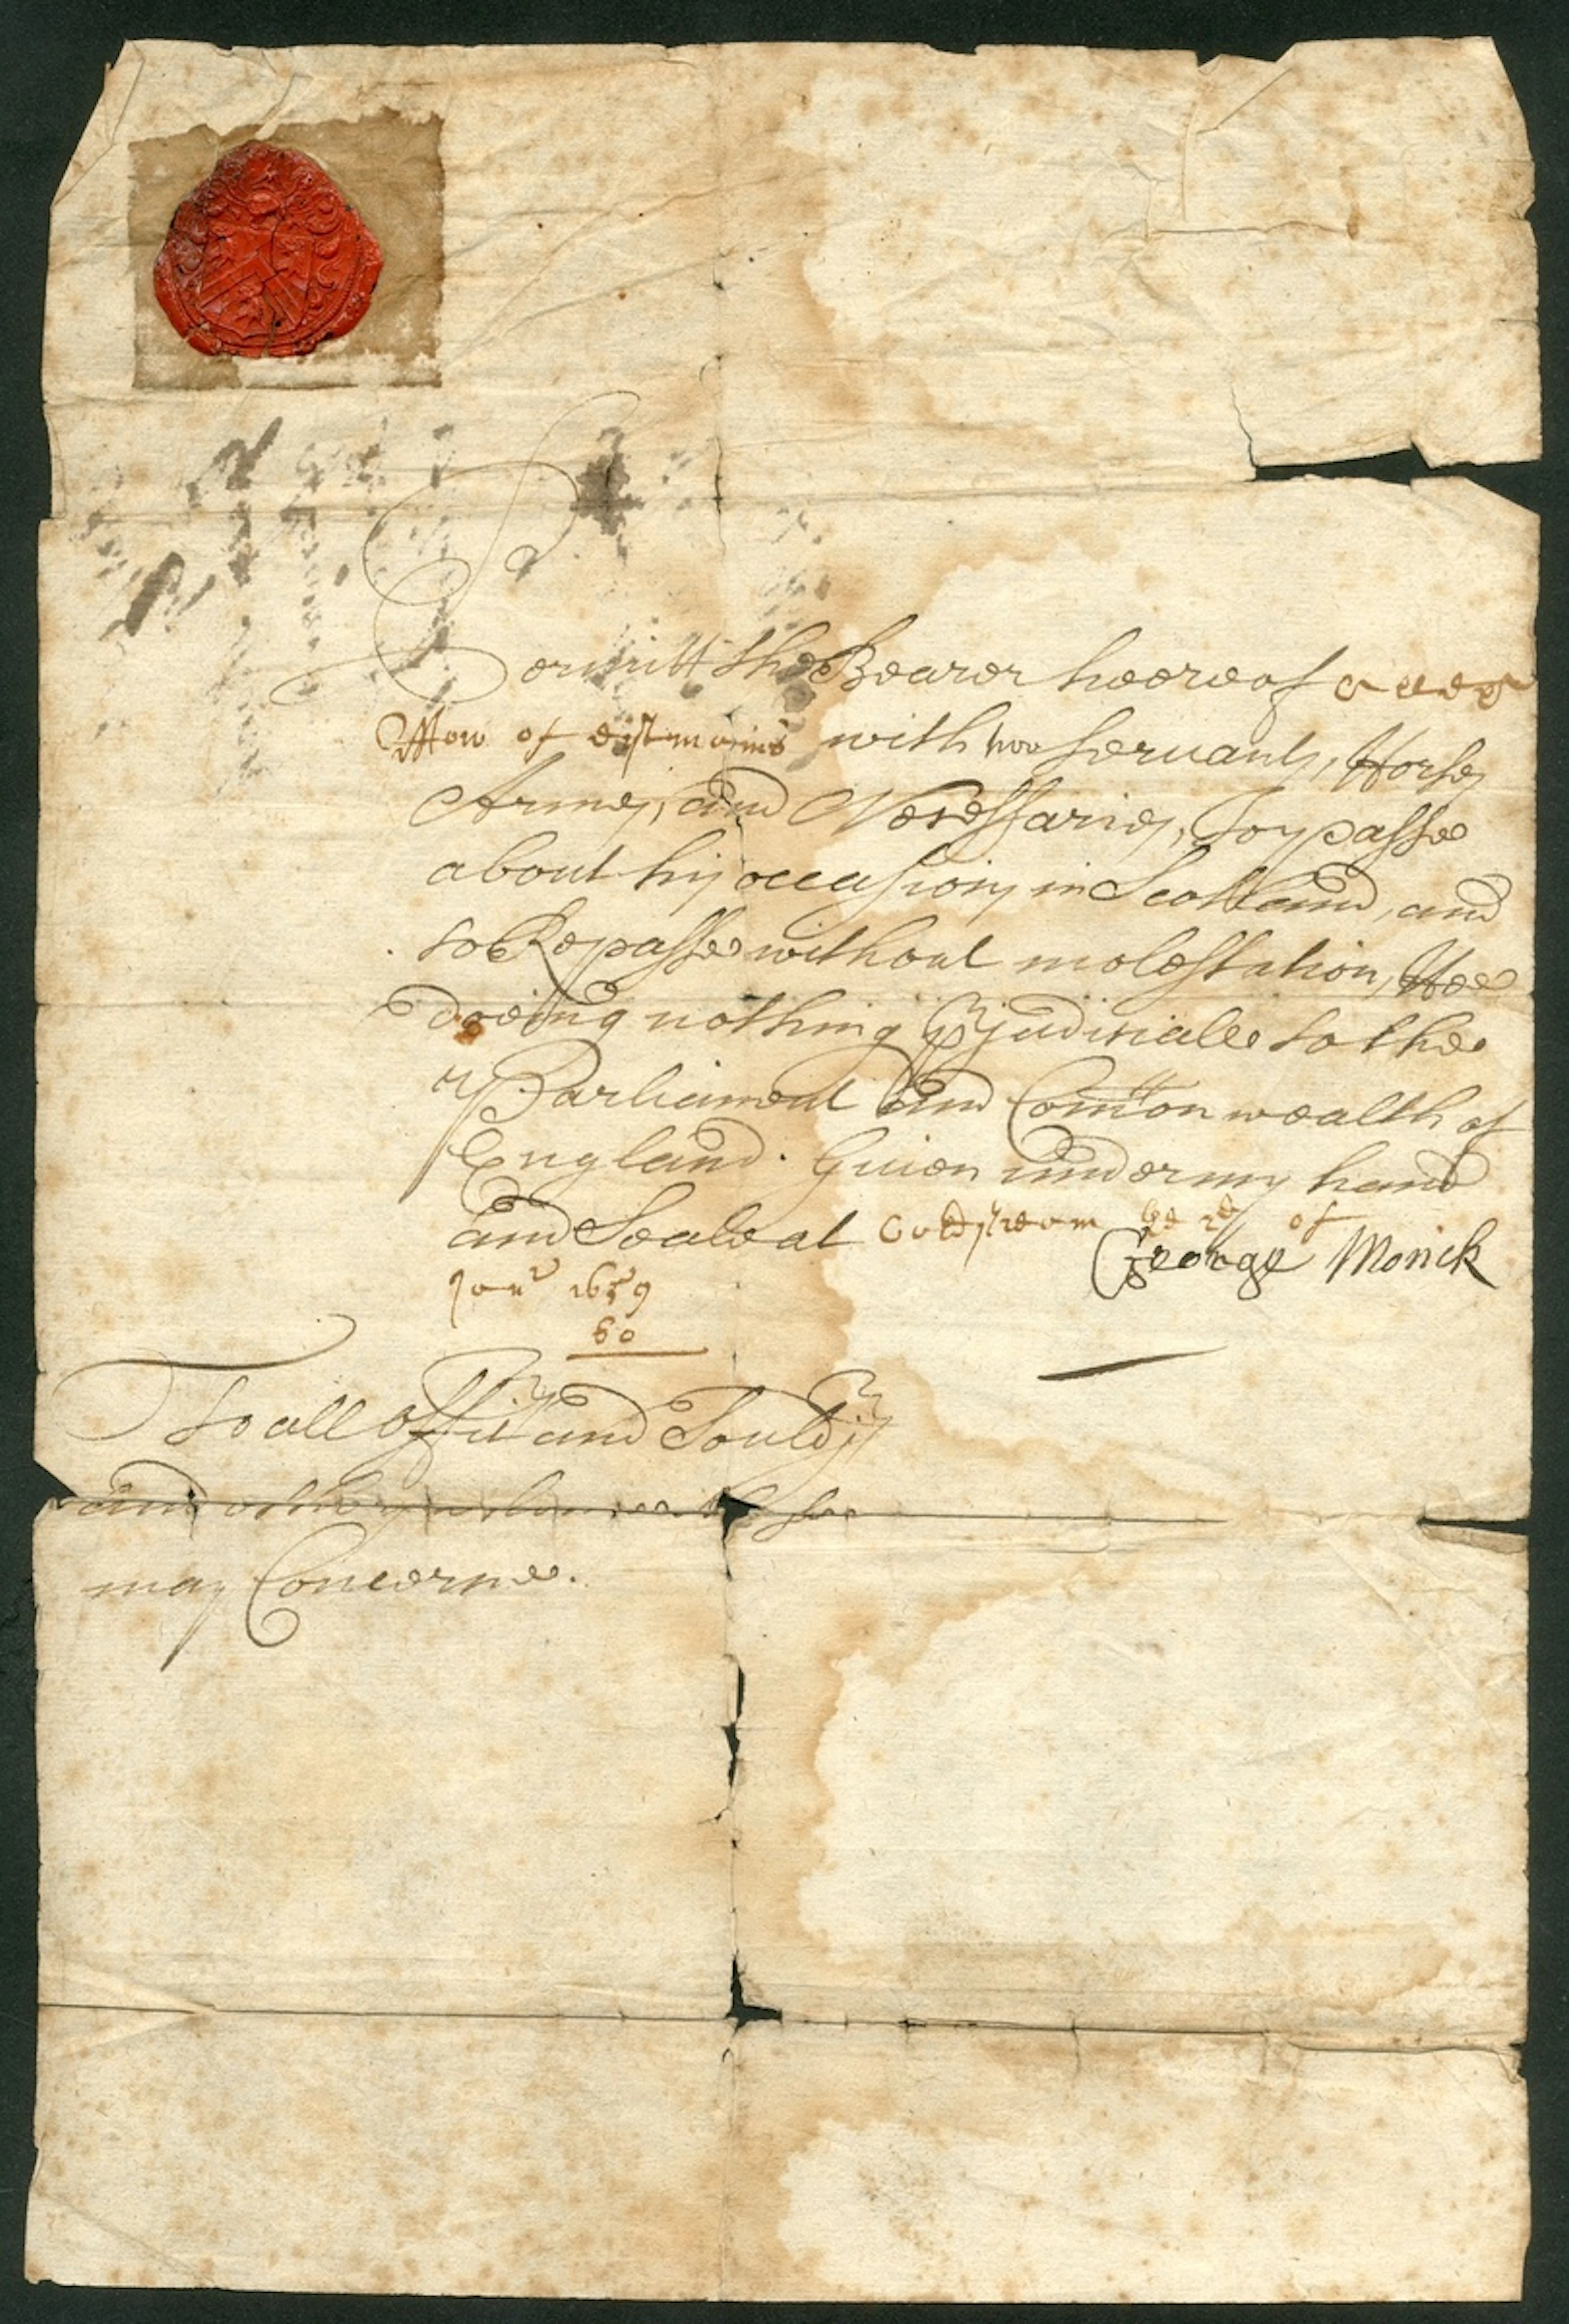 Permitt the Bearer heereof
of with two servants, Horses
Armes, and Necessaries, To passe
about his occasions in Scotland, and
to Repasse without molestation, Hee
doeing nothing p͛judiciall to the
Parliament and Com̃on wealth of
England. Giuen under my hand
and Seale at Coldstream of
George Monck
Janr 1659
60
To all Offic͛s and Sould͛s
and others whome
may Concerne.